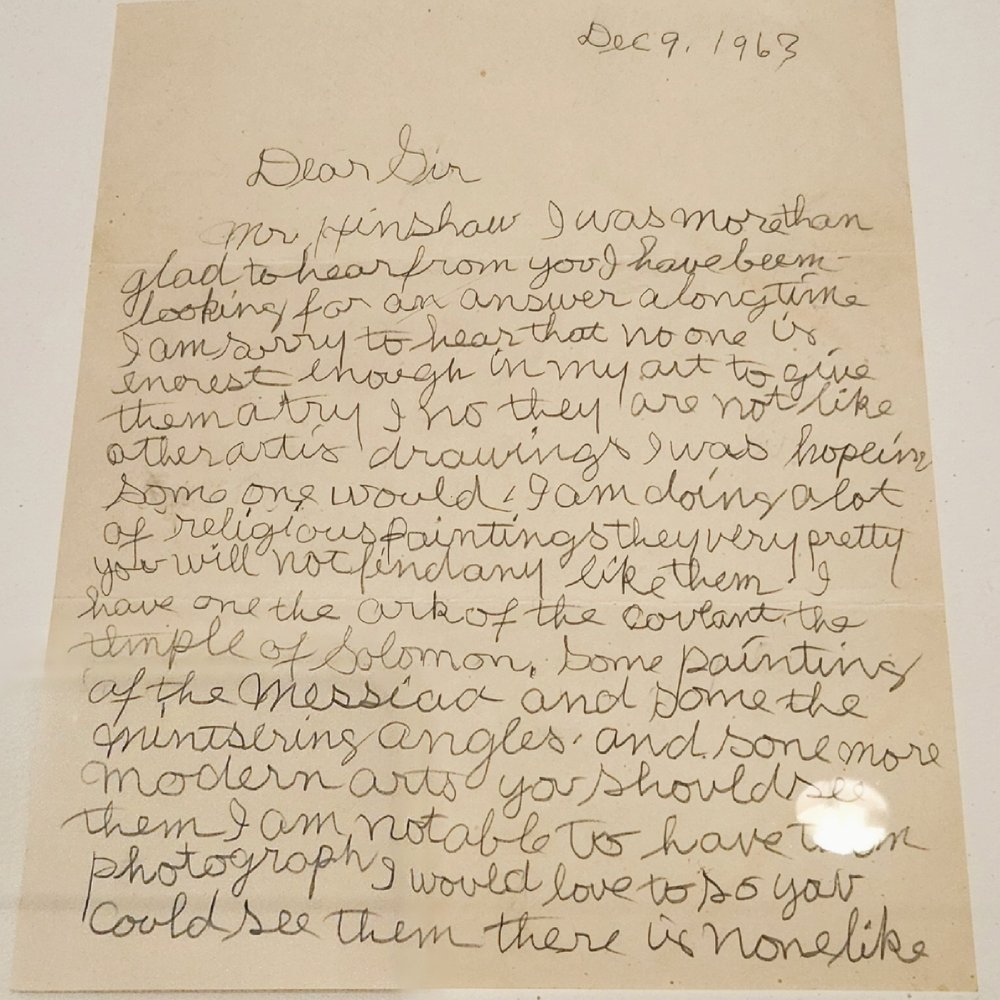 Dec 9. 1963
Dear Sir
Mr Hinshaw I was more than
glad to hear from you I have beem
looking for an answer a long time
I am sorry to hear that no one is
enerest enough in my art to give
them a try I no they are not like
other artis drawings I was hopeing
some one would. I am doing a lot
of religious paintings they very pretty
you will not find any like them. I
have one the ark of the covlant the
temple of Solomon, some painting
of the Messiad and some the
mintsering angles. and sone more
modern arts you should see
them I am not able to have them
photograph I would love to so you
could see them there is none like